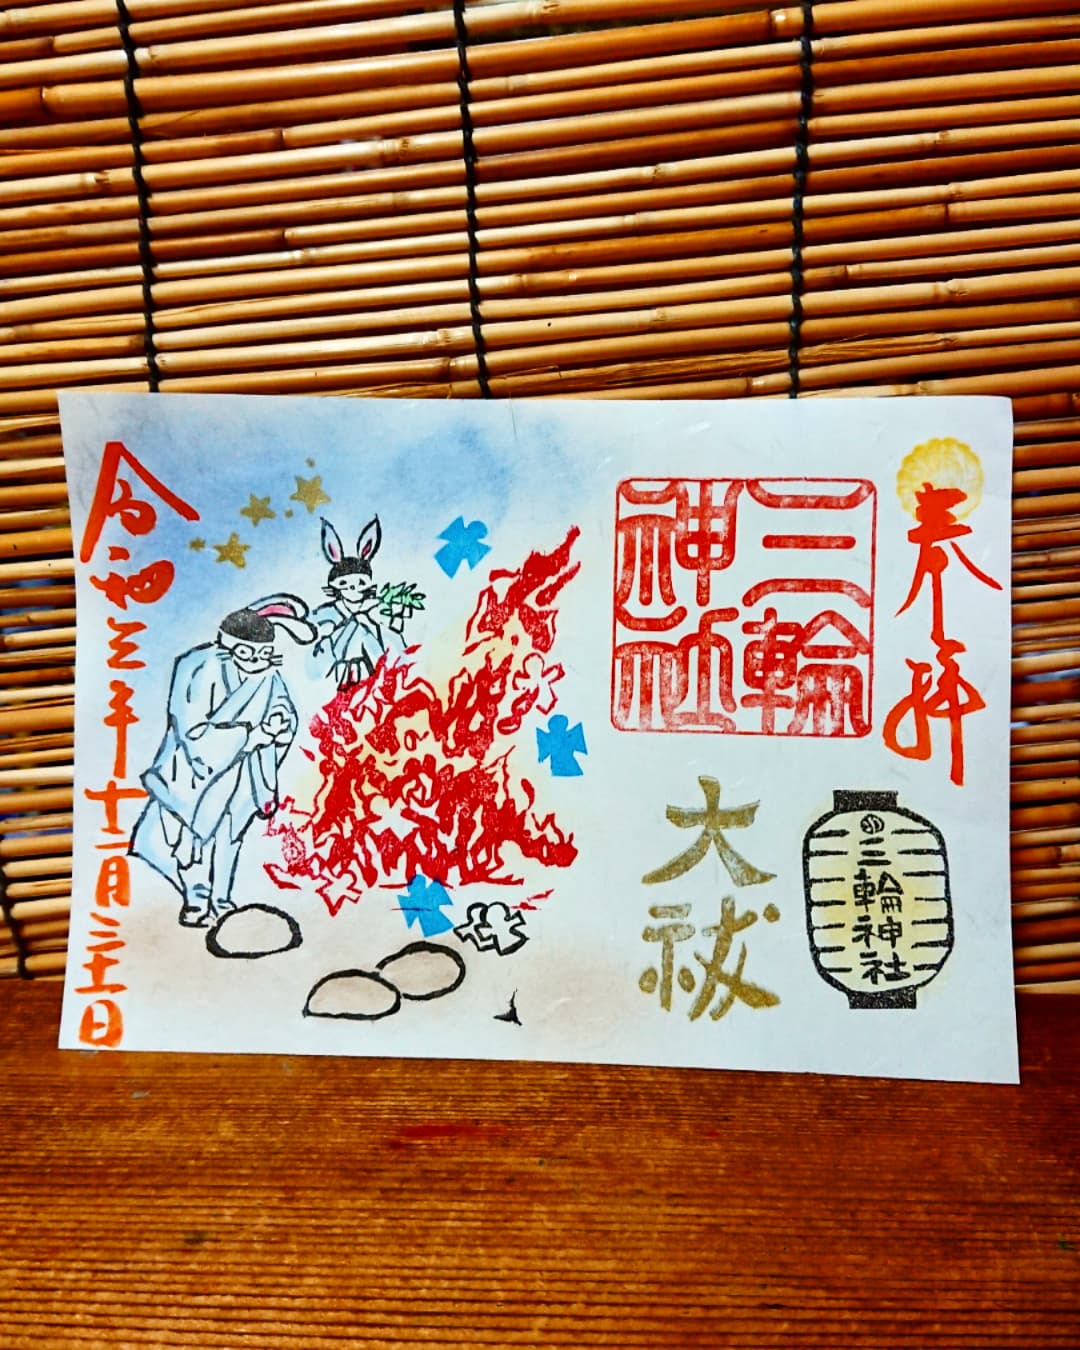 奉拝
三輪
神社
三輪神社
大祓
令和三年十二月三十一日